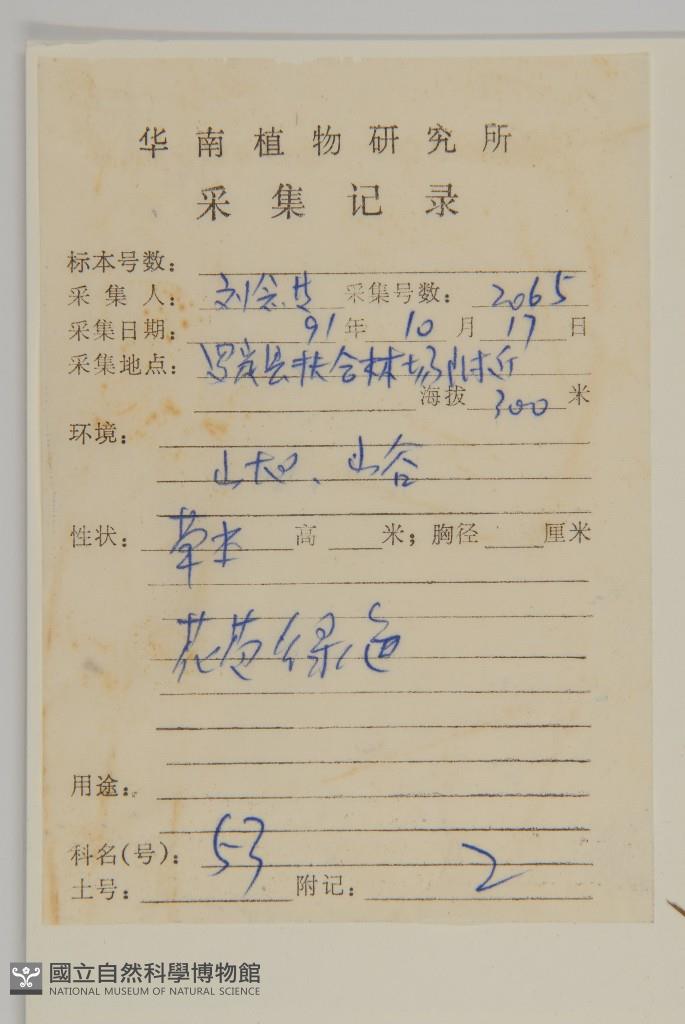 华南植物研究所
采集记录
标本号数：
采集人： 刘念 采集号数： 2065
采集日期： 91年 10月 17日
采集地点： 县扶合林场附近
海拔 300 米
环境：
山地、山谷
性状： 草本 高 米；胸径 厘米
花黄绿色
用途：
科名(号)： 53
土号： 附记： 2
國立自然科學博物館
NATIONAL MUSEUM OF NATURAL SCIENCE